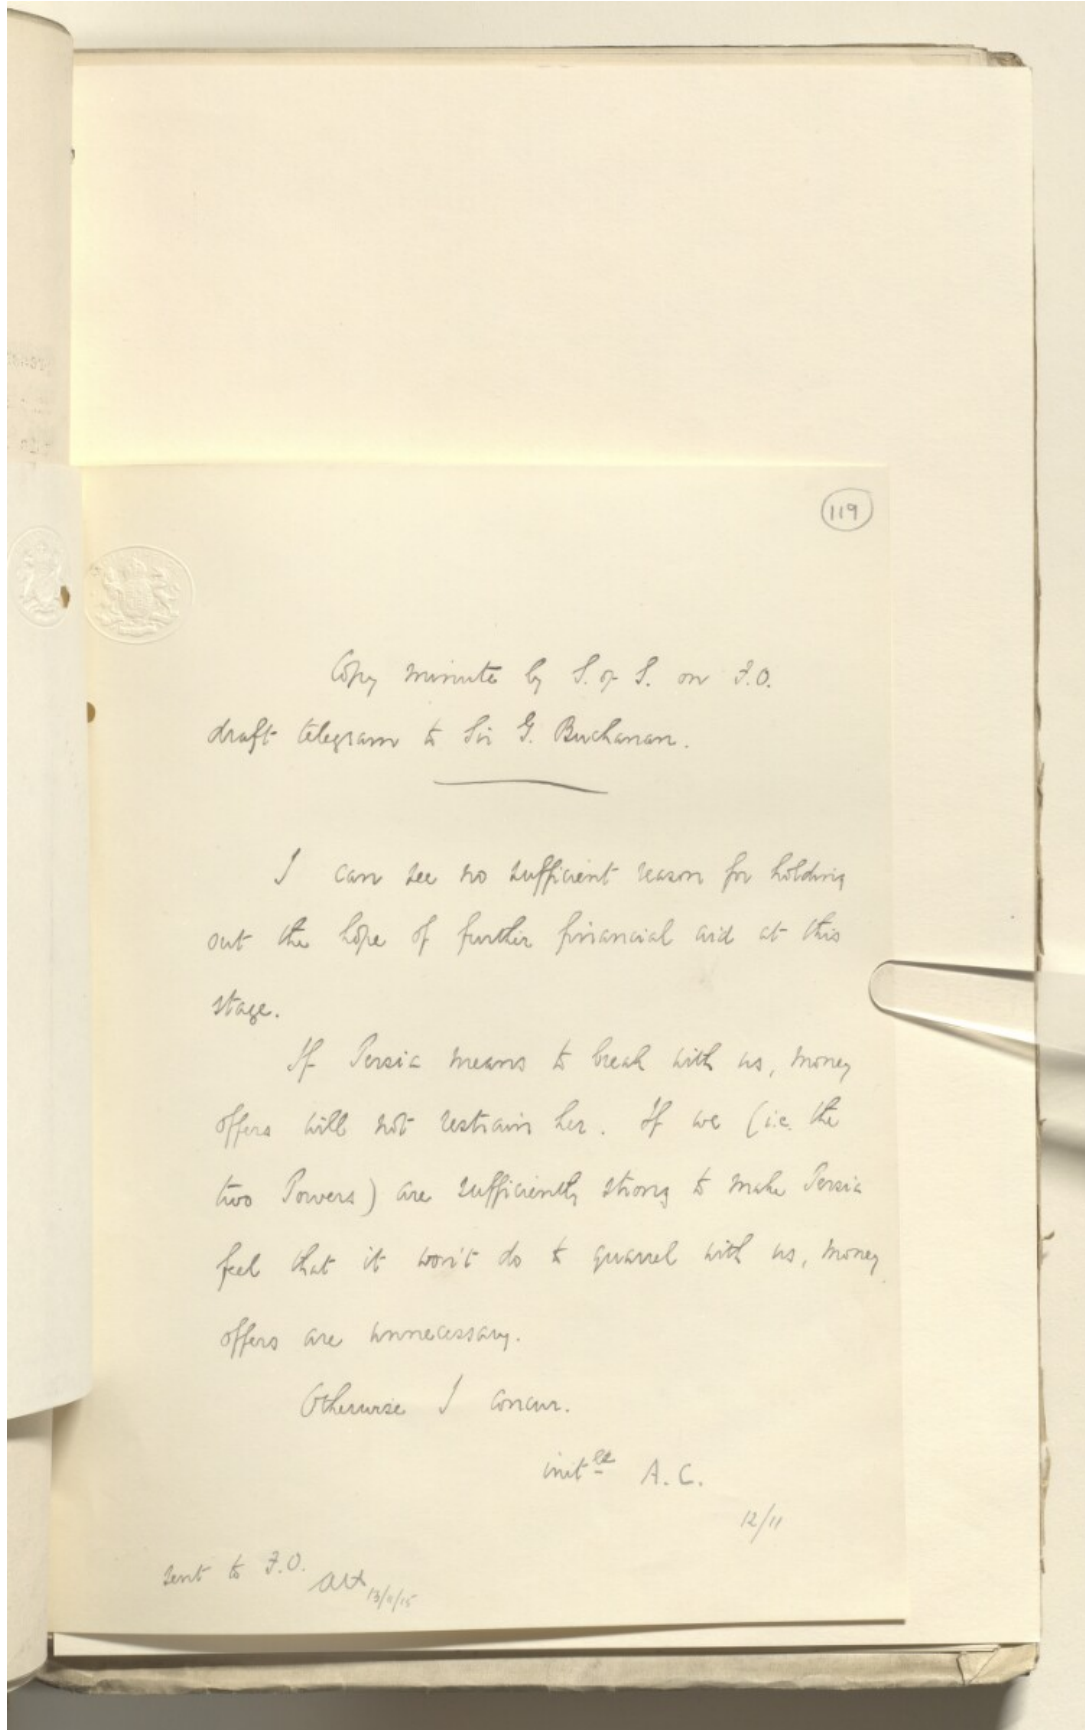 119
Copy minute by S. of S. on F.O.
draft telegram to Sir G. Buchanan.
I can see no sufficient reason for holding
out the hope of further financial aid at this
stage.
If Persia means to break with us, money
offers will not restrain her. If we (i.e. the
two Powers) are sufficiently strong to make Persia
feel that it won't do to quarrel with us, money
offers are unnecessary.
Otherwise I concur.
init^ld A. C.
12/11
sent to F.O.
13/11/15